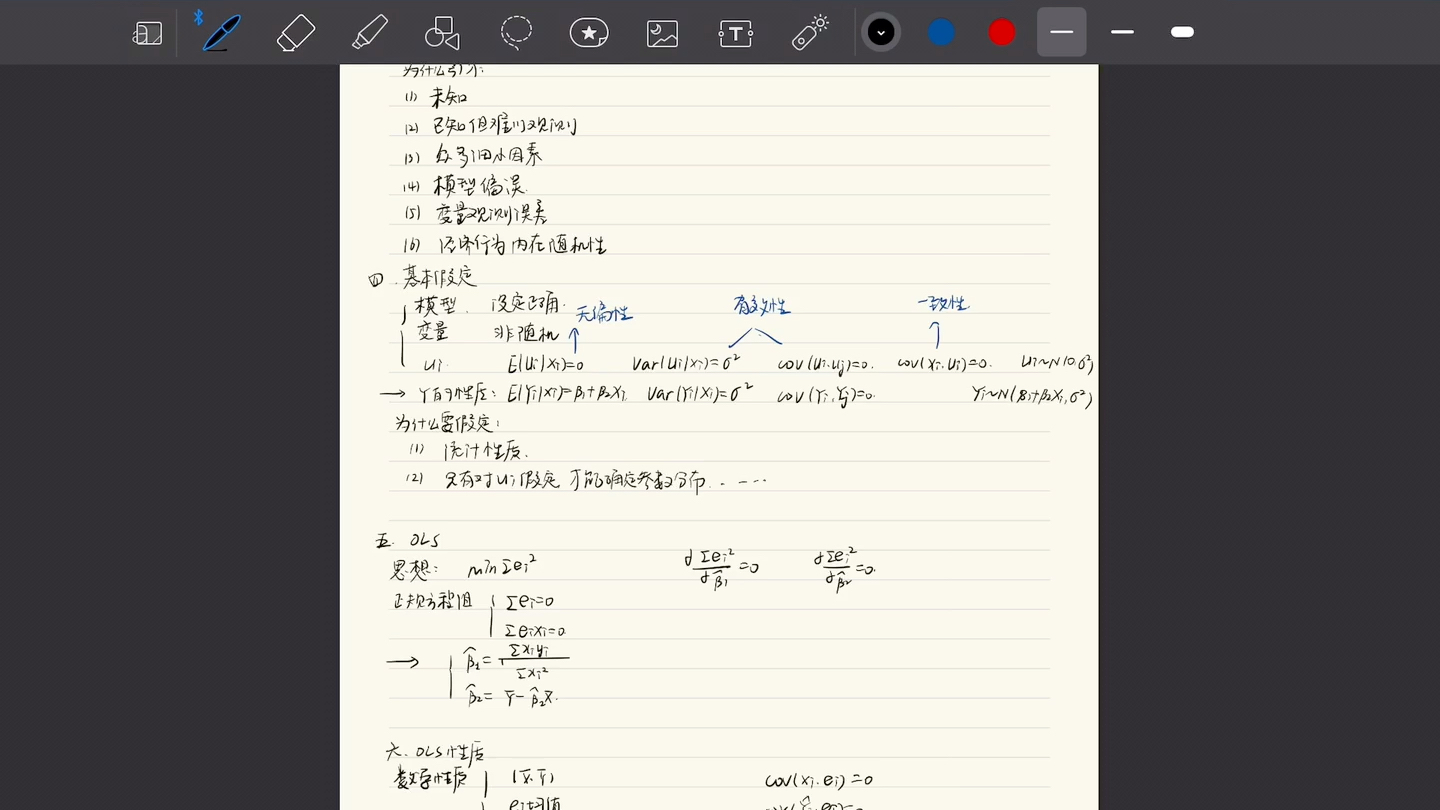 为什么引入:
(1) 未知
(2) 已知但难以观测
(3) 众多细小因素
(4) 模型偏误
(5) 变量观测误差
(6) 经济行为内在随机性
四. 基本假定
模型. 设定正确. 无偏性 有效性 一致性
变量 非随机
ui E(ui|xi)=0 Var(ui|xi)=σ² cov(ui.uj)=0. cov(xi.ui)=0. ui~N(0.σ²)
→ Y的性质: E(Yi|xi)=β1+β2Xi Var(Yi|Xi)=σ² cov(Yi,Yj)=0. Yi~N(β1+β2Xi,σ²)
为什么要假定:
(1) 统计性质.
(2) 只有对ui假定 才能确定参数分布......
五. OLS
思想: min Σei² ∂Σei²/∂β̂1=0 ∂Σei²/∂β̂2=0.
正规方程组 Σei=0
Σeixi=0
→ β̂2=Σxiyi/Σxi²
β̂2= Ȳ-β̂2X̄.
六. OLS性质
数学性质 (X̄.Ȳ) cov(xi.ei)=0
ei均值